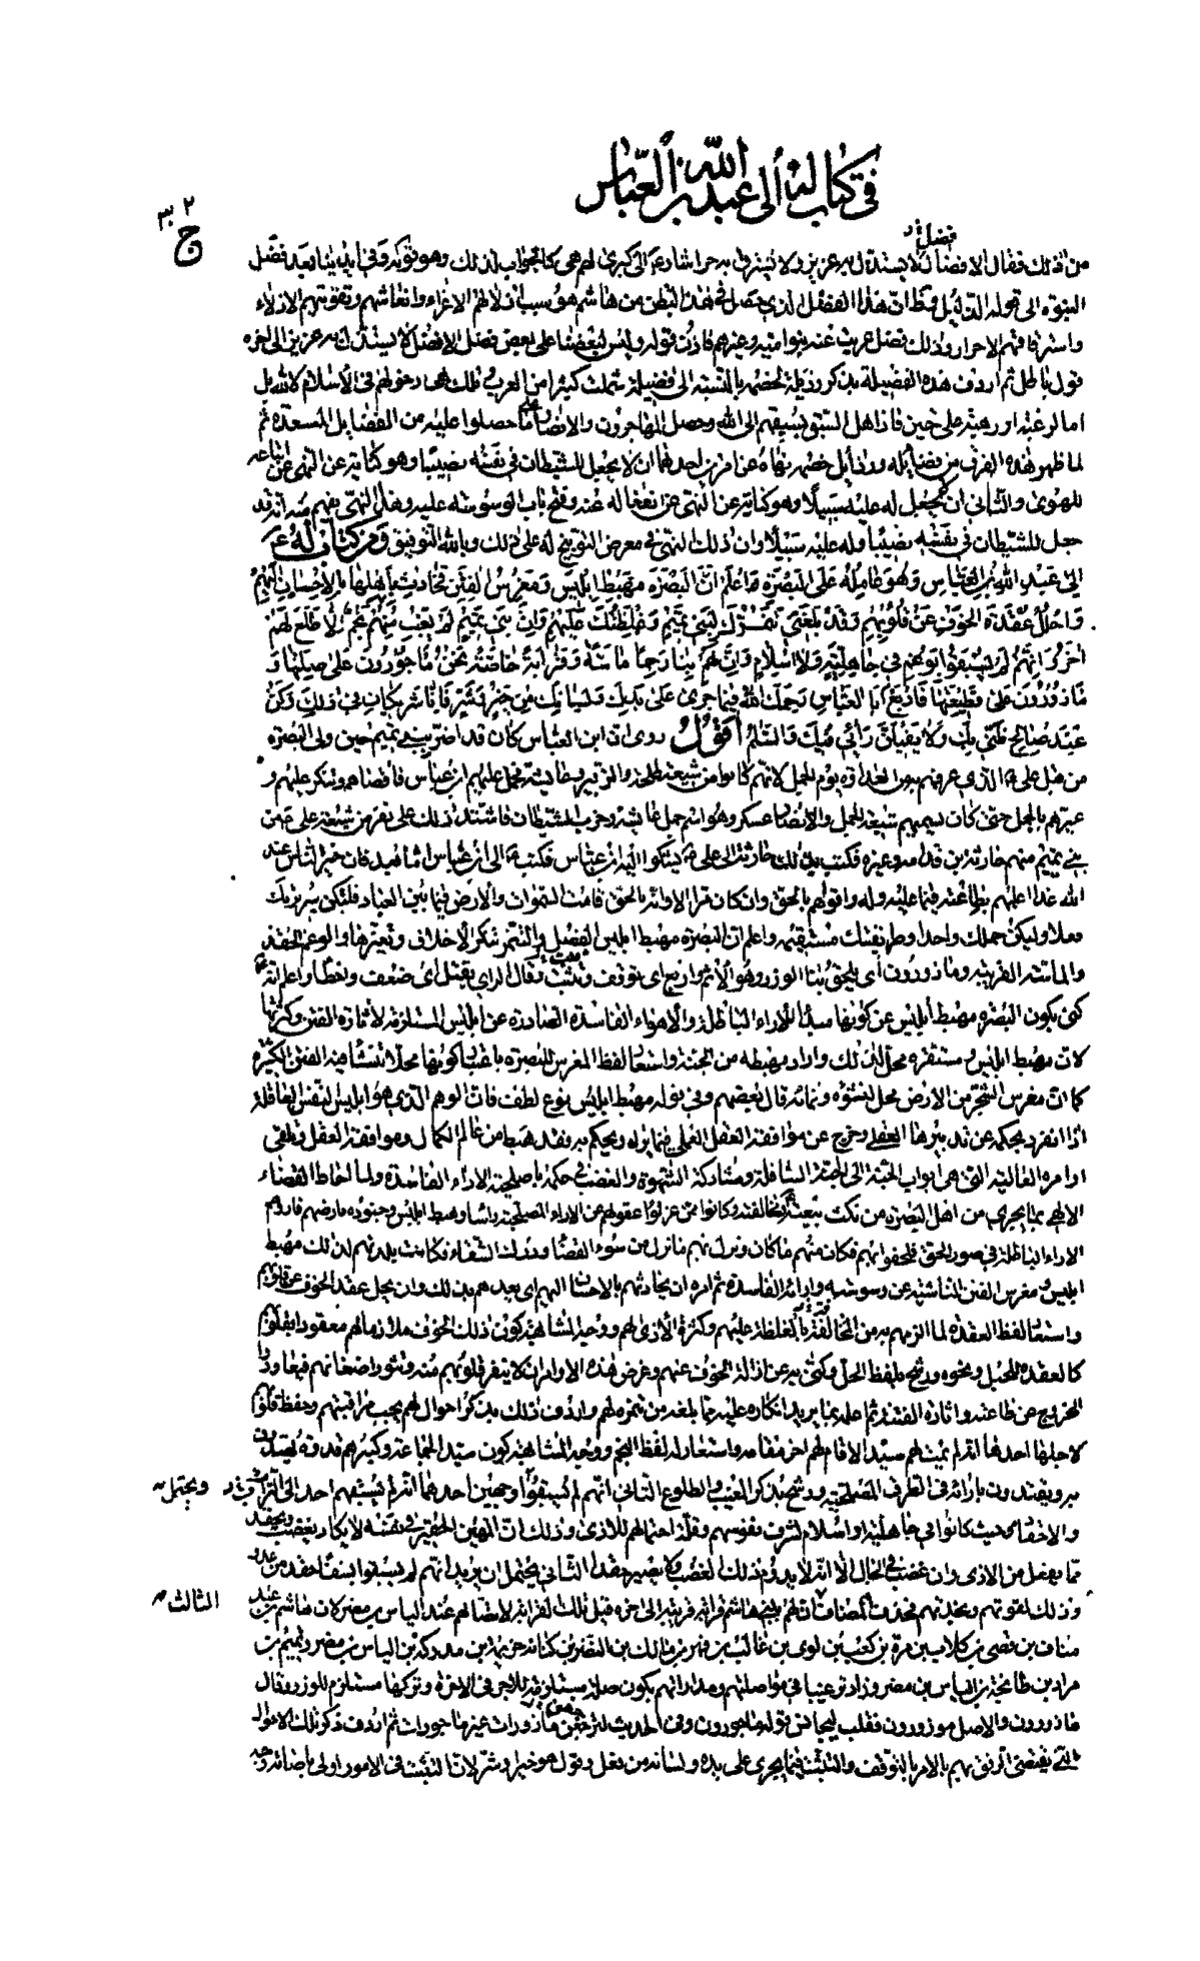 في كتاب له الى عبد الله بن العباس
ج ٢
فضل
من ذلك فقال الا فضلا لا يستذل به عزيز ولا يسترق به حر اشارة الى كبرى لهم هي كالجواب لذلك وهو توكيد وفي ايدينا بعد فضل
النبوة الى قوله الذليل وظ ان هذا الفضل الذي حصل في هذا البطن من هاشم هو سبب اذلالهم الاعزاء وانعاشهم وتقويتهم الاذلاء
واسترقاقهم الاحرار وذلك فضل عريت عنه بنو امية وغيرهم فاذن قوله وليس لبعضنا على بعض فضل الا فضل لا يستذل به عزيز الى اخره
قول باطل ثم اردف هذه الفضيلة بذكر رذيلة لخصمه بالنسبة الى فضيلة شملت كثيرا من العرب وتلك هي دخولهم في الاسلام لا لله بل
اما لرغبة او رهبة على حين فاز اهل السبق بسبقهم الى الله وحصل المهاجرون والانصار على ما حصلوا عليه من الفضايل المسعدة ثم
لما ظهر هذه الفرق من فضايله ورذايل خصمه نهاه عن امرين احدهما ان لا يجعل للشيطان في نفسه نصيبا وهو كناية عن النهي عن اتباعه
للهوى والثاني ان لا يجعل له عليه سبيلا وهو كناية عن النهي عن انفعاله عنه وفتح باب الوسوسة عليه وهذا النهي يفهم منه انه قد
جعل للشيطان في نفسه نصيبا وله عليه سبيلا وان ذلك النهي في معرض التوبيخ له على ذلك وبالله التوفيق ومن كتاب له ع
الى عبد الله بن العباس وهو عامله على البصرة واعلم ان البصرة مهبط ابليس ومغرس الفتن فحادث اهلها بالاحسان اليهم
واحلل عقدة الخوف عن قلوبهم وقد بلغني تنمرك لبني تميم وغلظتك عليهم وان بني تميم لم يغب منهم نجم الا طلع لهم
اخر وانهم لم يسبقوا بوغم في جاهلية ولا اسلام وان لهم بنا رحما ماسة وقرابة خاصة نحن ماجورون على صلتها و
مازورون على قطيعتها فاربع ابا العباس رحمك الله فيما جرى على يدك ولسانك من خير وشر فانا شريكان في ذلك وكن
عند صالح ظني بك ولا يفيلن رايي فيك والسلم اقول روى ان ابن العباس كان قد اضر ببني تميم حين ولى البصرة
من قبل علي ع الذي عرفهم به من العداوة يوم الجمل لانهم كانوا من شيعة طلحة والزبير وعايشة فحمل عليهم ابن عباس فاقصاهم وتنكر عليهم و
عيرهم بالجمل حتى كان يسميهم شيعة الجمل وانصار عسكر وهو اسم جمل عايشة وحزب الشيطان فاشتد ذلك على نفر من شيعة علي ع من
بني تميم منهم حارثة بن قدامة وغيره فكتب بذلك حارثة الى علي ع يشكوا اليه ابن عباس فكتب ع الى ابن عباس اما بعد فان خير الناس عند
الله غدا اعملهم بطاعته فيما عليه وله واقولهم بالحق وان كان مرا الا وانه بالحق قامت السموات والارض فيما بين العباد فلتكن سريرتك
فعلا وليكن حكمك واحدا وطريقتك مستقيمة واعلم ان البصرة مهبط ابليس الفصل والتنمر تنكر الاخلاق وتغيرها والوغم الحقد
والماسة القريبة ومازورون اي يلحق بنا الوزر وهو الاثم واربع اي توقف وتثبت وفال الراي يفيل اي ضعف واخطأ واعلم انه
كنى بكون البصرة مهبط ابليس عن كونها مبدأ للاراء الباطلة والاهواء الفاسدة الصادرة عن ابليس المستلزمة لاثارة الفتن وكثرتها
لان مهبط ابليس ومستقره محل لذلك واراد مهبطه من الجنة واستعار لفظ المغرس للبصرة باعتبار كونها محلا تنشأ فيه الفتن الكثيرة
كما ان مغرس الشجر من الارض محل لنشوه ونمائه قال بعضهم وفي قوله مهبط ابليس نوع لطف فان الوهم الذي هو ابليس النفس العاقلة
اذا انفرد بحكمه عن تدبيرها العقلي وخرج عن موافقة العقل العملي فيما يراه ويحكم به فقد هبط من عالم الكمال وموافقة العقل وتلقى
اوامره العالية التي هي ابواب الجنة الى الجنة السافلة ومشاركة الشهوة والغضب في حكمه باصلحية الاراء الفاسدة ولما احاط القضاء
الالهي بما يجري من اهل البصرة من نكث بيعته ع ومخالفته وكانوا ممن عزلوا عقولهم عن الاراء المصلحية راسا وهبط ابليس وجنوده بارضهم فاروهم
الاراء الباطلة في صور الحق فلحقوا بهم فكان منهم ما كان ونزل بهم ما نزل من سوء القضاء ودرك الشقاء فكانت بلدتهم لذلك مهبط
ابليس ومغرس الفتن الناشئة عن وسوسته وارائه الفاسدة ثم امره ان يحادثهم بالاحسان اليهم اي يعدهم بذلك وان يحل عقد الخوف عن قلوبهم
واستعار لفظ العقدة لما الزمهم به من المخافة بالغلظة عليهم وكثرة الاذى لهم ووجه المشابهة كون ذلك الخوف ملازما لهم معقودا بقلوبهم
كالعقدة للحبل ونحوه ورشح بلفظ الحل وكنى به عن ازالة الخوف عنهم وغرض هذه الاوامر ان لا ينفر قلوبهم منه وتثور اضغانهم فيعاودوا
الخروج عن طاعته واثارة الفتنة ثم اعلمه بما يريد انكاره عليه مما بلغه من تنمره لهم واردف ذلك بذكر احوال لهم يجب مراقبتهم وحفظ قلوبهم
لاجلها احدها انه لم يمت لهم سيد الا قام لهم اخر مقامه واستعار له لفظ النجم ووجه المشابهة كون سيد الجماعة وكبيرهم قدوة يهتدون
به ويقتدون بارائه في الطرق المصلحية ورشح بذكر المغيب والطلوع الثاني انهم لم يسبقوا وجهين احدهما انه لم يسبقهم احد الى الترات
ويحتمل
والاحقاد حيث كانوا في جاهلية او اسلام لشرف نفوسهم وقلة احتمالهم للاذى وذلك ان المهين الحقير في نفسه لا يكاد يغضب ويحقد
مما يفعل من الاذى وان غضب في الحال الا انه لا يدوم ذلك الغضب ولا يصير حقدا الثاني يحتمل ان يريد انهم لم يسبقوا بشفاء حقد من عدو
وذلك لقوتهم ونجدتهم فحذف المضاف ان لهم ببني هاشم قرابة قريبة الى اخره قيل تلك القرابة لاتصالهم عند الياس بن مضر لان هاشم بن عبد
الثالث
مناف بن قصي بن كلاب بن مرة بن كعب بن لوى بن غالب بن فهر بن مالك بن النضر بن كنانة بن خزيمة بن مدركة بن الياس بن مضر وتميم بن
مراد بن طابخة بن الياس بن مضر وزاد ترغيبا في مواصلتهم ومداراتهم بكون صلة الرحم مستلزمة للاجر في الاخرة وتركها مستلزم للوزر وقال
مازورون والاصل موزورون فقلب ليجانس قوله ماجورون وفي الحديث لترجعن مازورات غير ماجورات ثم اردف ذكر تلك الاحوال
التي يقتضي الرفق بهم بالامر بالتوقف والتثبت فيما يجري على يده ولسانه من فعل وقول هو خير او شر لان التثبت في الامور اولى باصابة وجه